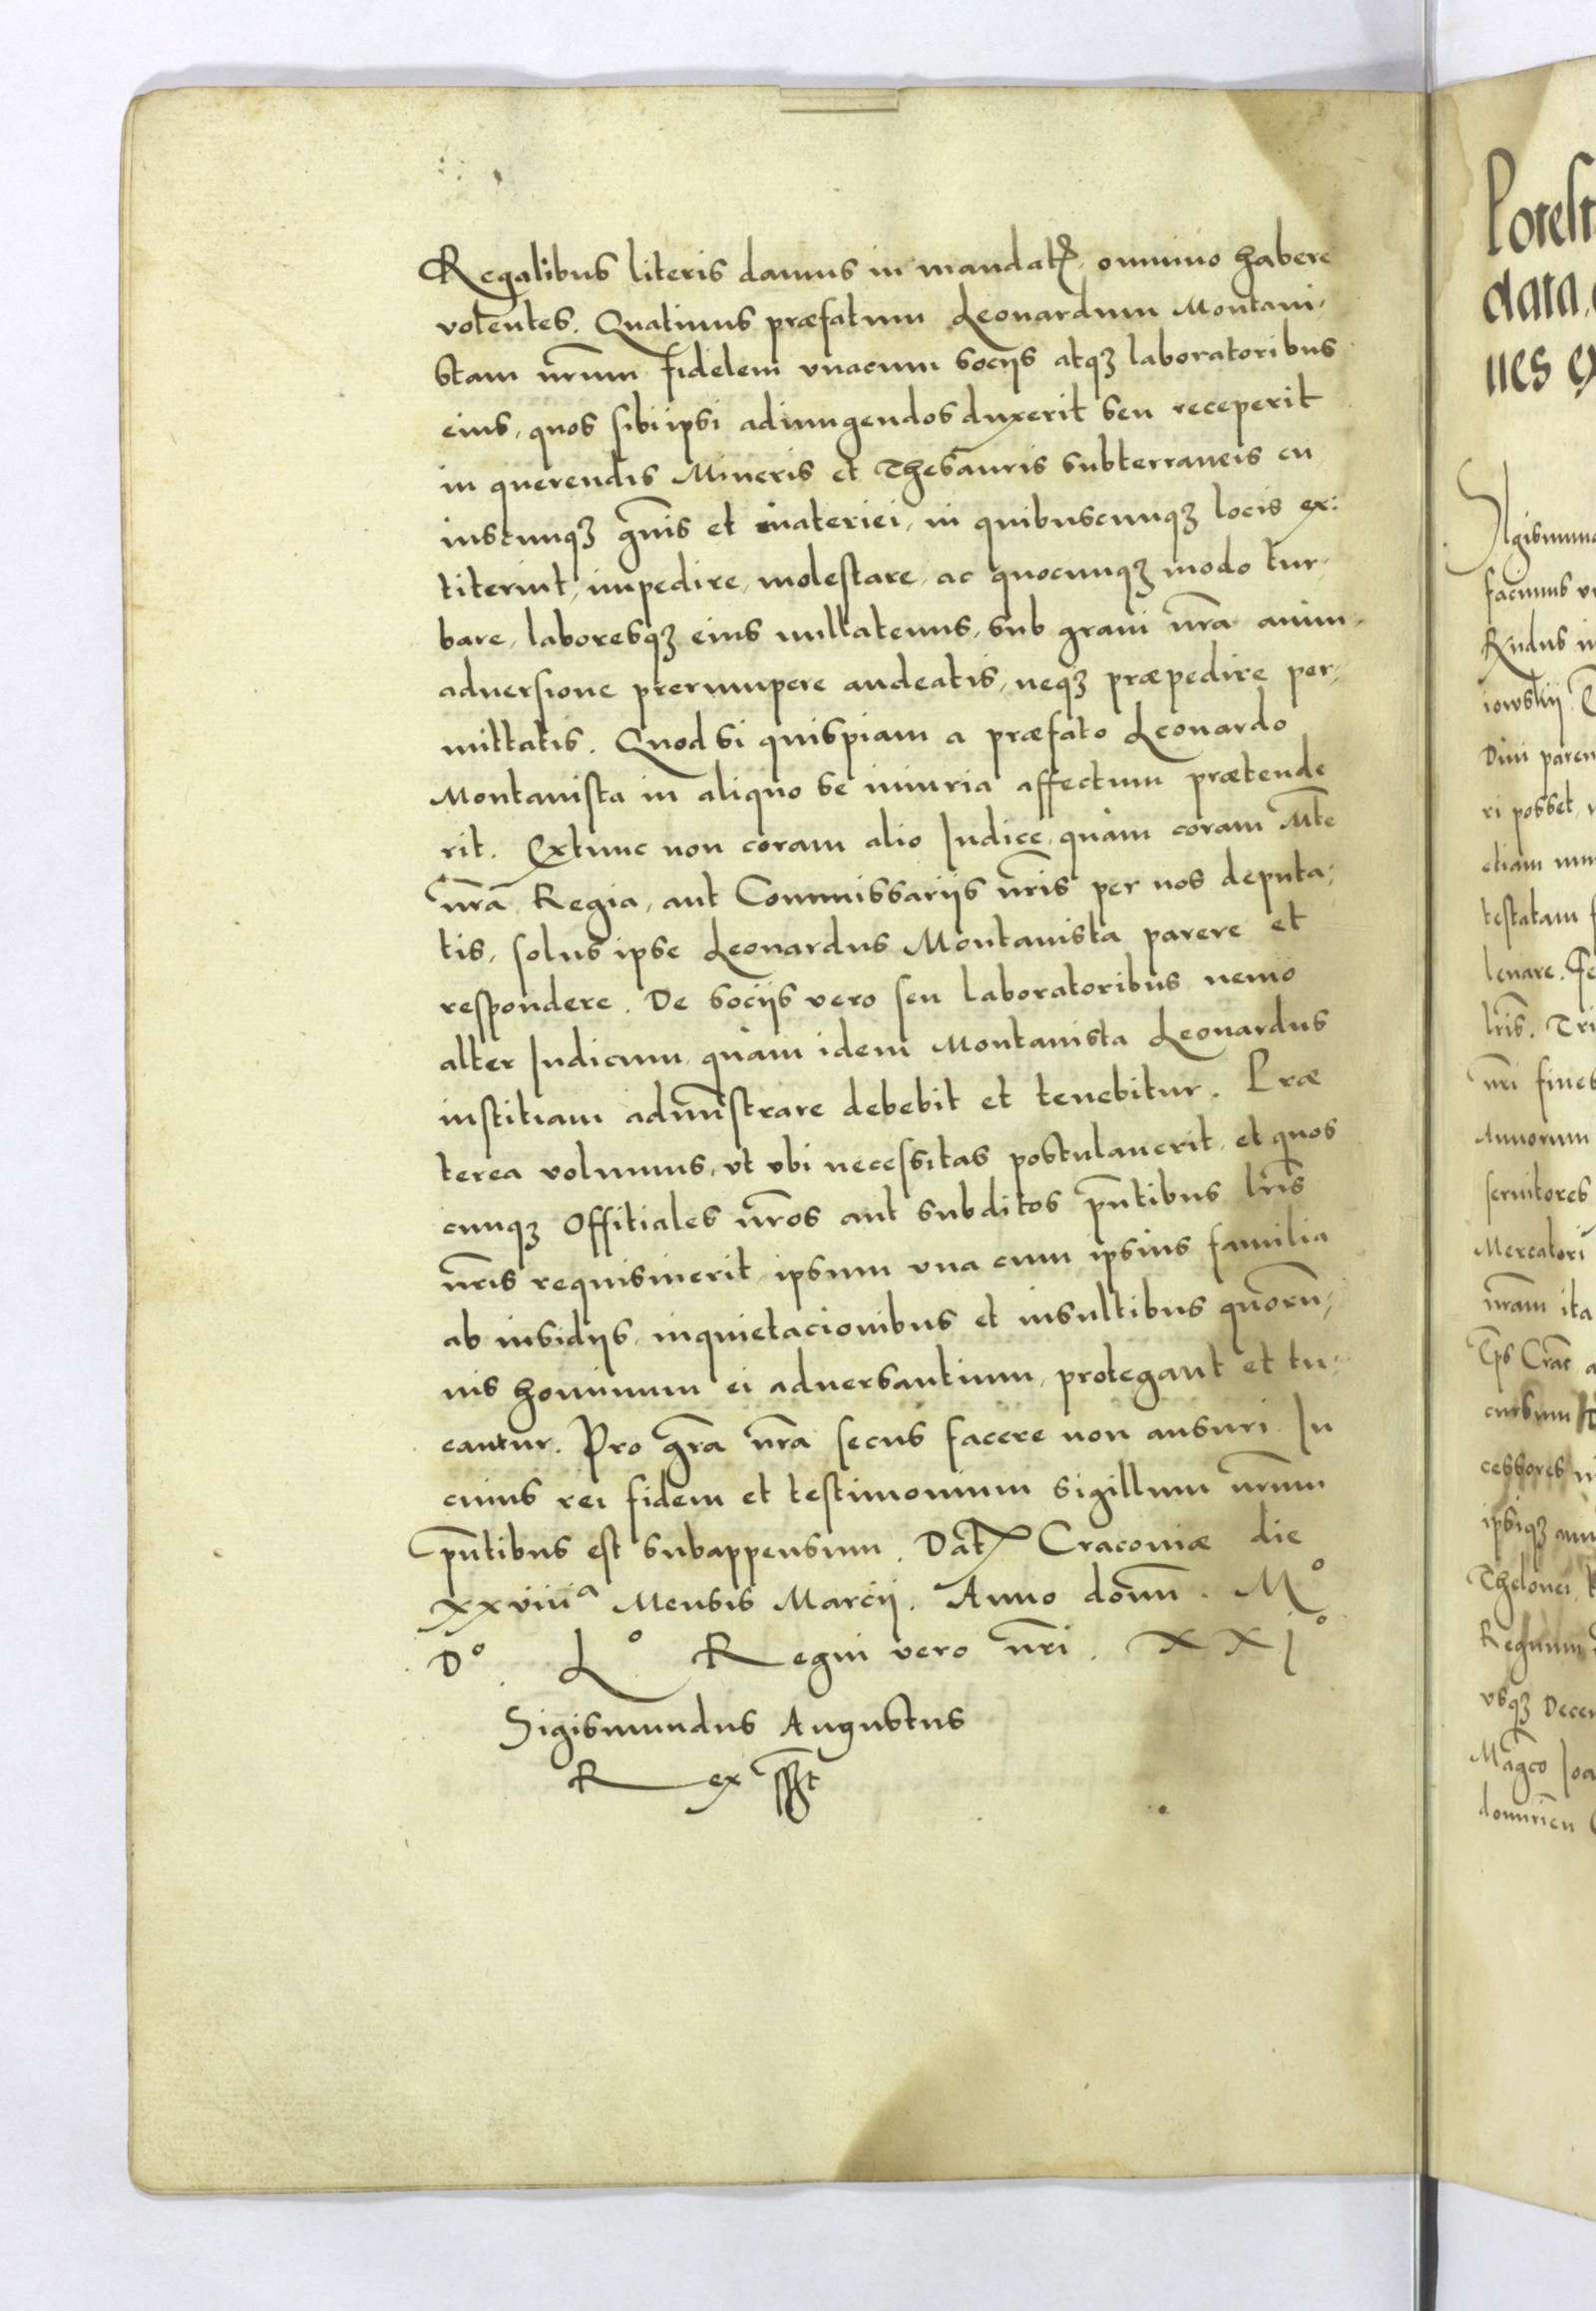 Regalibus literis damus in mandatꝭ, omnino habere
volentes. Quatinus præfatum Leonardum Montani-
stam nr̃um fidelem vnacum socijs atqꝫ laboratoribus
eius, quos sibiipsi adiungendos duxerit seu receperit
in querendis Mineris et Thesauris subterraneis cu
iuscunqꝫ gñis et materiei, in quibuscunqꝫ locis ex:
titerint, impedire, molestare, ac quocunqꝫ modo tur-
bare, laboresqꝫ eius nullatenus, sub graui nr̃a anim-
aduersione prerumpere audeatis, neqꝫ præpedire per-
mittatis. Quod si quispiam a præfato Leonardo
Montanista in aliquo se iniuria affectum prætende
rit. Extunc non coram alio Iudice, quàm coram Mt̃e
nr̃a Regia, aut Commissarijs nr̃is per nos deputa-
tis, solus ipse Leonardus Montanista parere et
respondere. De socijs vero seu laboratoribus nemo
alter Iudicum, quàm idem Montanista Leonardus
iustitiam adm̃istrare debebit et tenebitur. Præ
terea volumus, vt vbi necessitas postulauerit, et quos
cunqꝫ Offitiales nr̃os aut subditos pñtibus lr̃is
nr̃is requisiuerit, ipsum vna cum ipsius familia
ab insidijs, inquietacionibus et insultibus quorũ-
uis hominum ei aduersantium, protegant et tu-
eantur. Pro gr̃a nr̃a secus facere non ausuri. In
cuius rei fidem et testimonium Sigillum nr̃um
pñtibus est subappensum. Dat̃ Cracouiæ die
xxviiiᵃ Mensis Marcij. Anno domñ. Mº
Dº Lº Regni vero nr̃i. XXIº
Sigismundus Augustus
Rex sst
Potest
data,
nes ex
Sigismund
facimus
Rudus
iowskij
Diui paren
ri posset,
etiam
testatam
leuare.
lr̃is. Tri
nr̃i fines
Annorum
seruitores
Mercatori
nr̃am ita
Tp̃s Crac̃
cursum
cessores
ipsiqꝫ
Thelonei,
Regnum
vsqꝫ Decem
Mag̃co Ioa